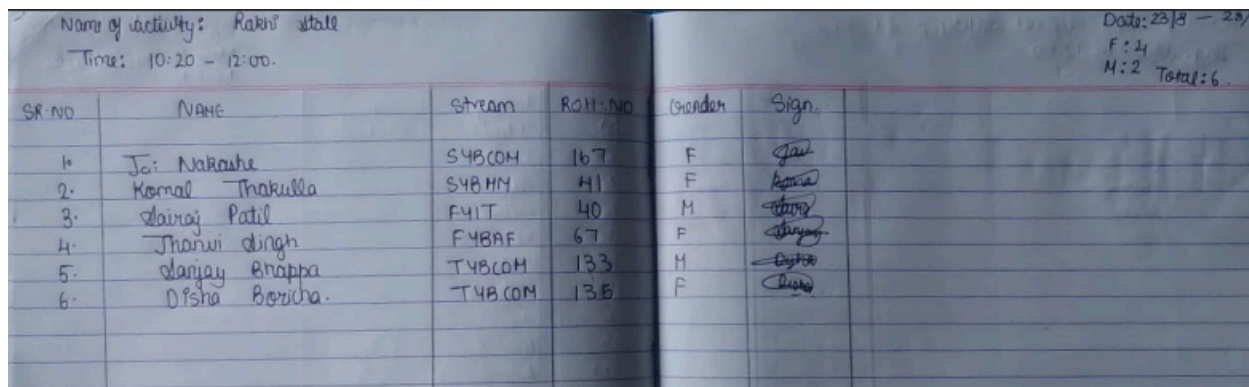 Name of activity: Rakhi stall
Date: 23/8 - 23/
Time: 10:20 - 12:00.
F: 4
M: 2 Total: 6.
SR.NO NAME Stream ROll.NO Gender Sign.
1. Jai Nakashe SYBCOM 167 F Jai
2. Komal Thakulla SYBHM 41 F Komal
3. Sairaj Patil FYIT 40 M
4. Jhanvi Singh FYBAF 67 F
5. Sanjay Bhappa TYBCOM 133 M
6. Disha Boricha. TYBCOM 135 F Disha